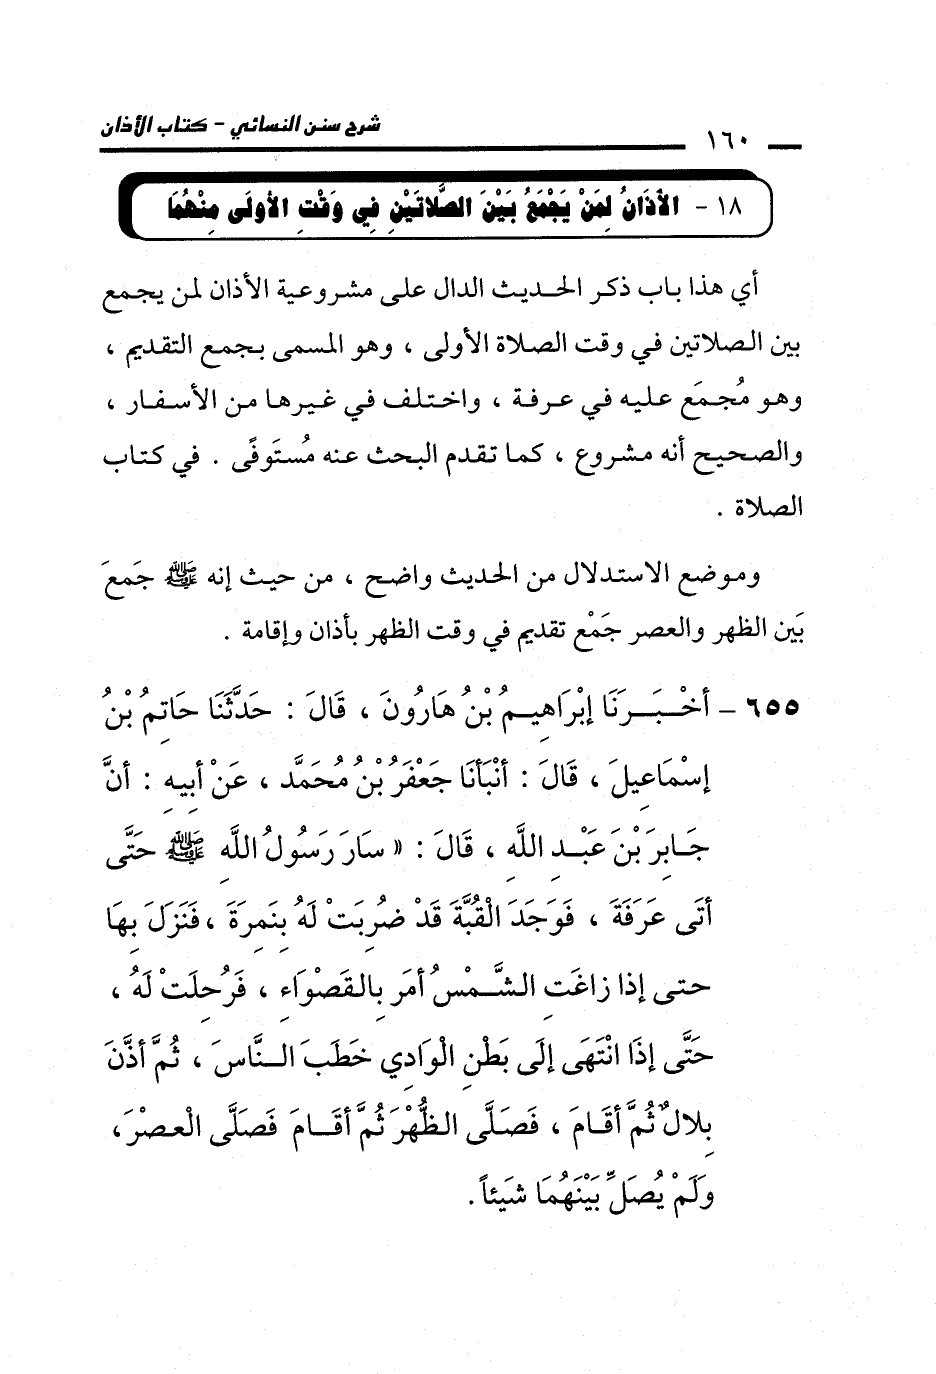 شرح سنن النسائي - كتاب الأذان
١٦٠
١٨ - الأذَانُ لِمَنْ يَجْمَعُ بَيْنَ الصَّلاَتَيْنِ فِي وَقْتِ الأولَى مِنْهُمَا
أي هذا باب ذكر الحديث الدال على مشروعية الأذان لمن يجمع
بين الصلاتين في وقت الصلاة الأولى ، وهو المسمى بجمع التقديم ،
وهو مُجمَع عليه في عرفة ، واختلف في غيرها من الأسفار ،
والصحيح أنه مشروع ، كما تقدم البحث عنه مُستَوفًى . في كتاب
الصلاة .
وموضع الاستدلال من الحديث واضح ، من حيث إنه ﷺ جَمعَ
بَين الظهر والعصر جَمْع تقديم في وقت الظهر بأذان وإقامة .
٦٥٥ - أخْبَرَنَا إبْرَاهِيمُ بْنُ هَارُونَ ، قَالَ : حَدَّثَنَا حَاتِمُ بْنُ
إسْمَاعِيلَ ، قَالَ : أنْبَأنَا جَعْفَرُ بْنُ مُحَمَّد ، عَنْ أبِيهِ : أنَّ
جَابِرَ بْنَ عَبْدِ اللَّهِ ، قَالَ : « سَارَ رَسُولُ اللَّهِ ﷺ حَتَّى
أتَى عَرَفَةَ ، فَوَجَدَ الْقُبَّةَ قَدْ ضُرِبَتْ لَهُ بِنَمِرَةَ ، فَنَزَلَ بِهَا
حتى إذا زاغَتِ الشَّمْسُ أمَر بِالقَصْوَاءِ ، فَرُحِلَتْ لَهُ ،
حَتَّى إذَا انْتَهَى إلَى بَطْنِ الْوَادِي خَطَبَ النَّاسَ ، ثُمَّ أذَّنَ
بِلالٌ ثُمَّ أقَامَ ، فَصَلَّى الظُّهْرَ ثُمَّ أقَامَ فَصَلَّى الْعصْرَ ،
وَلَمْ يُصَلِّ بَيْنَهُمَا شَيَئاً .